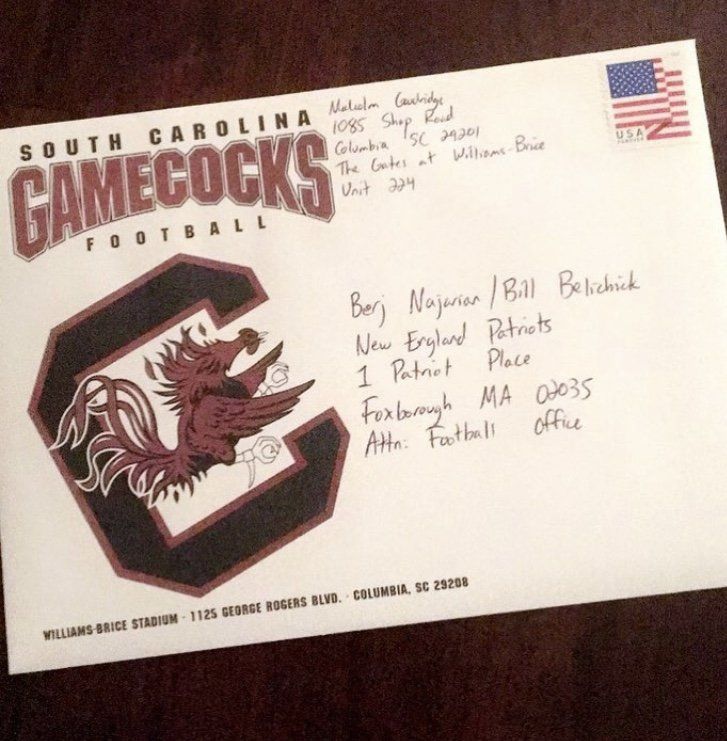 SOUTH CAROLINA
GAMECOCKS
FOOTBALL
Malcolm
1085 Shop Road
Columbia SC 29201
The Gates at Williams-Brice
Unit 224
USA
FOREVER
Berj Najarian / Bill Belichick
New England Patriots
1 Patriot Place
Foxborough MA 02035
Attn: Football Office
WILLIAMS-BRICE STADIUM · 1125 GEORGE ROGERS BLVD. · COLUMBIA, SC 29208